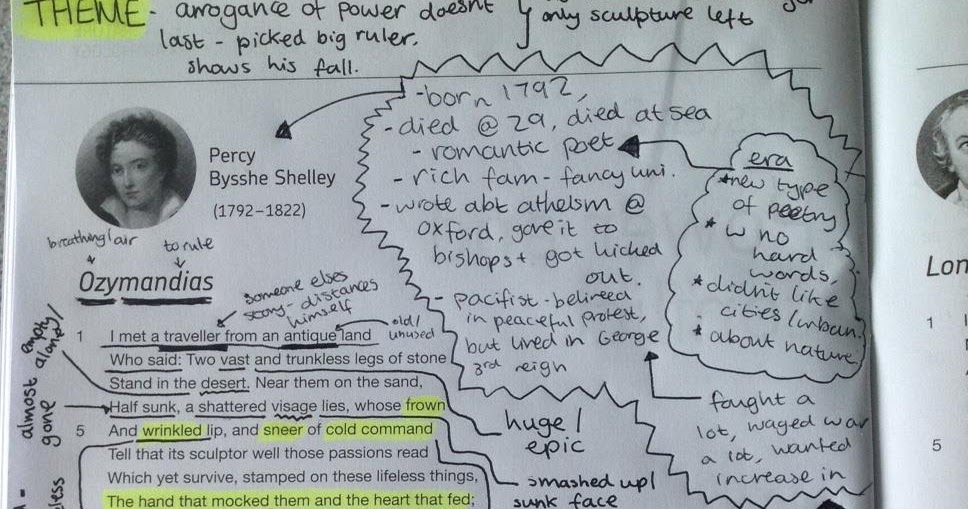 THEME - arrogance of power doesnt
last - picked big ruler.
shows his fall.
only sculpture left
Percy
Bysshe Shelley
(1792–1822)
-born 1792,
- died @ 29, died at sea
- romantic poet
- rich fam - fancy uni.
- wrote abt atheism @
oxford, gave it to
bishops + got kicked
out.
- pacifist - belireed
in peaceful protest,
but lived in George
3rd reign
era
*new type
of poetry
* w no
hard
words,
*didn't like
cities (urban)
* about nature
fought a
lot, waged war
a lot, wanted
increase in
breathing/air
to rule
Ozymandias
someone elses
story - distances
himself
old/
unused
1 I met a traveller from an antique land
Who said: Two vast and trunkless legs of stone
Stand in the desert. Near them on the sand,
Half sunk, a shattered visage lies, whose frown
5 And wrinkled lip, and sneer of cold command
Tell that its sculptor well those passions read
Which yet survive, stamped on these lifeless things,
The hand that mocked them and the heart that fed;
empty/
alone
almost
gone
huge/
epic
smashed up/
sunk face
Lon
1
5